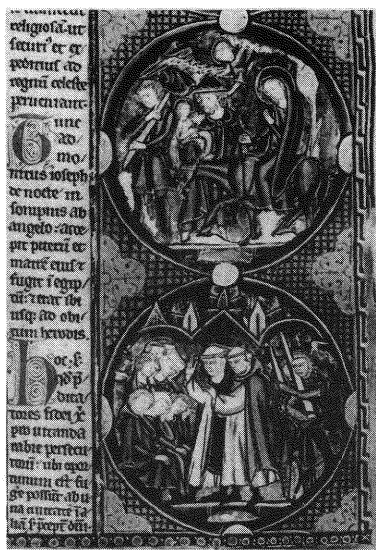 religiosã. ut
securi⁹ et ex
peditius ad
regnũ celeste
perueniant.
Tunc
ad
mo
nitus ioseph
de nocte in
sompnis ab
angelo. acce
pit puerũ et
matrẽ eius ⁊
fugit ĩ egip
tũ. ⁊ erat ibi
usqȝ ad obi
tum herodis.
Hoc .s.
dica
tores fidei
pro uitanda
rabie persecu
ubi opor
tunum est fu
ge possũt ab u
na ciuitate ĩ a
liã